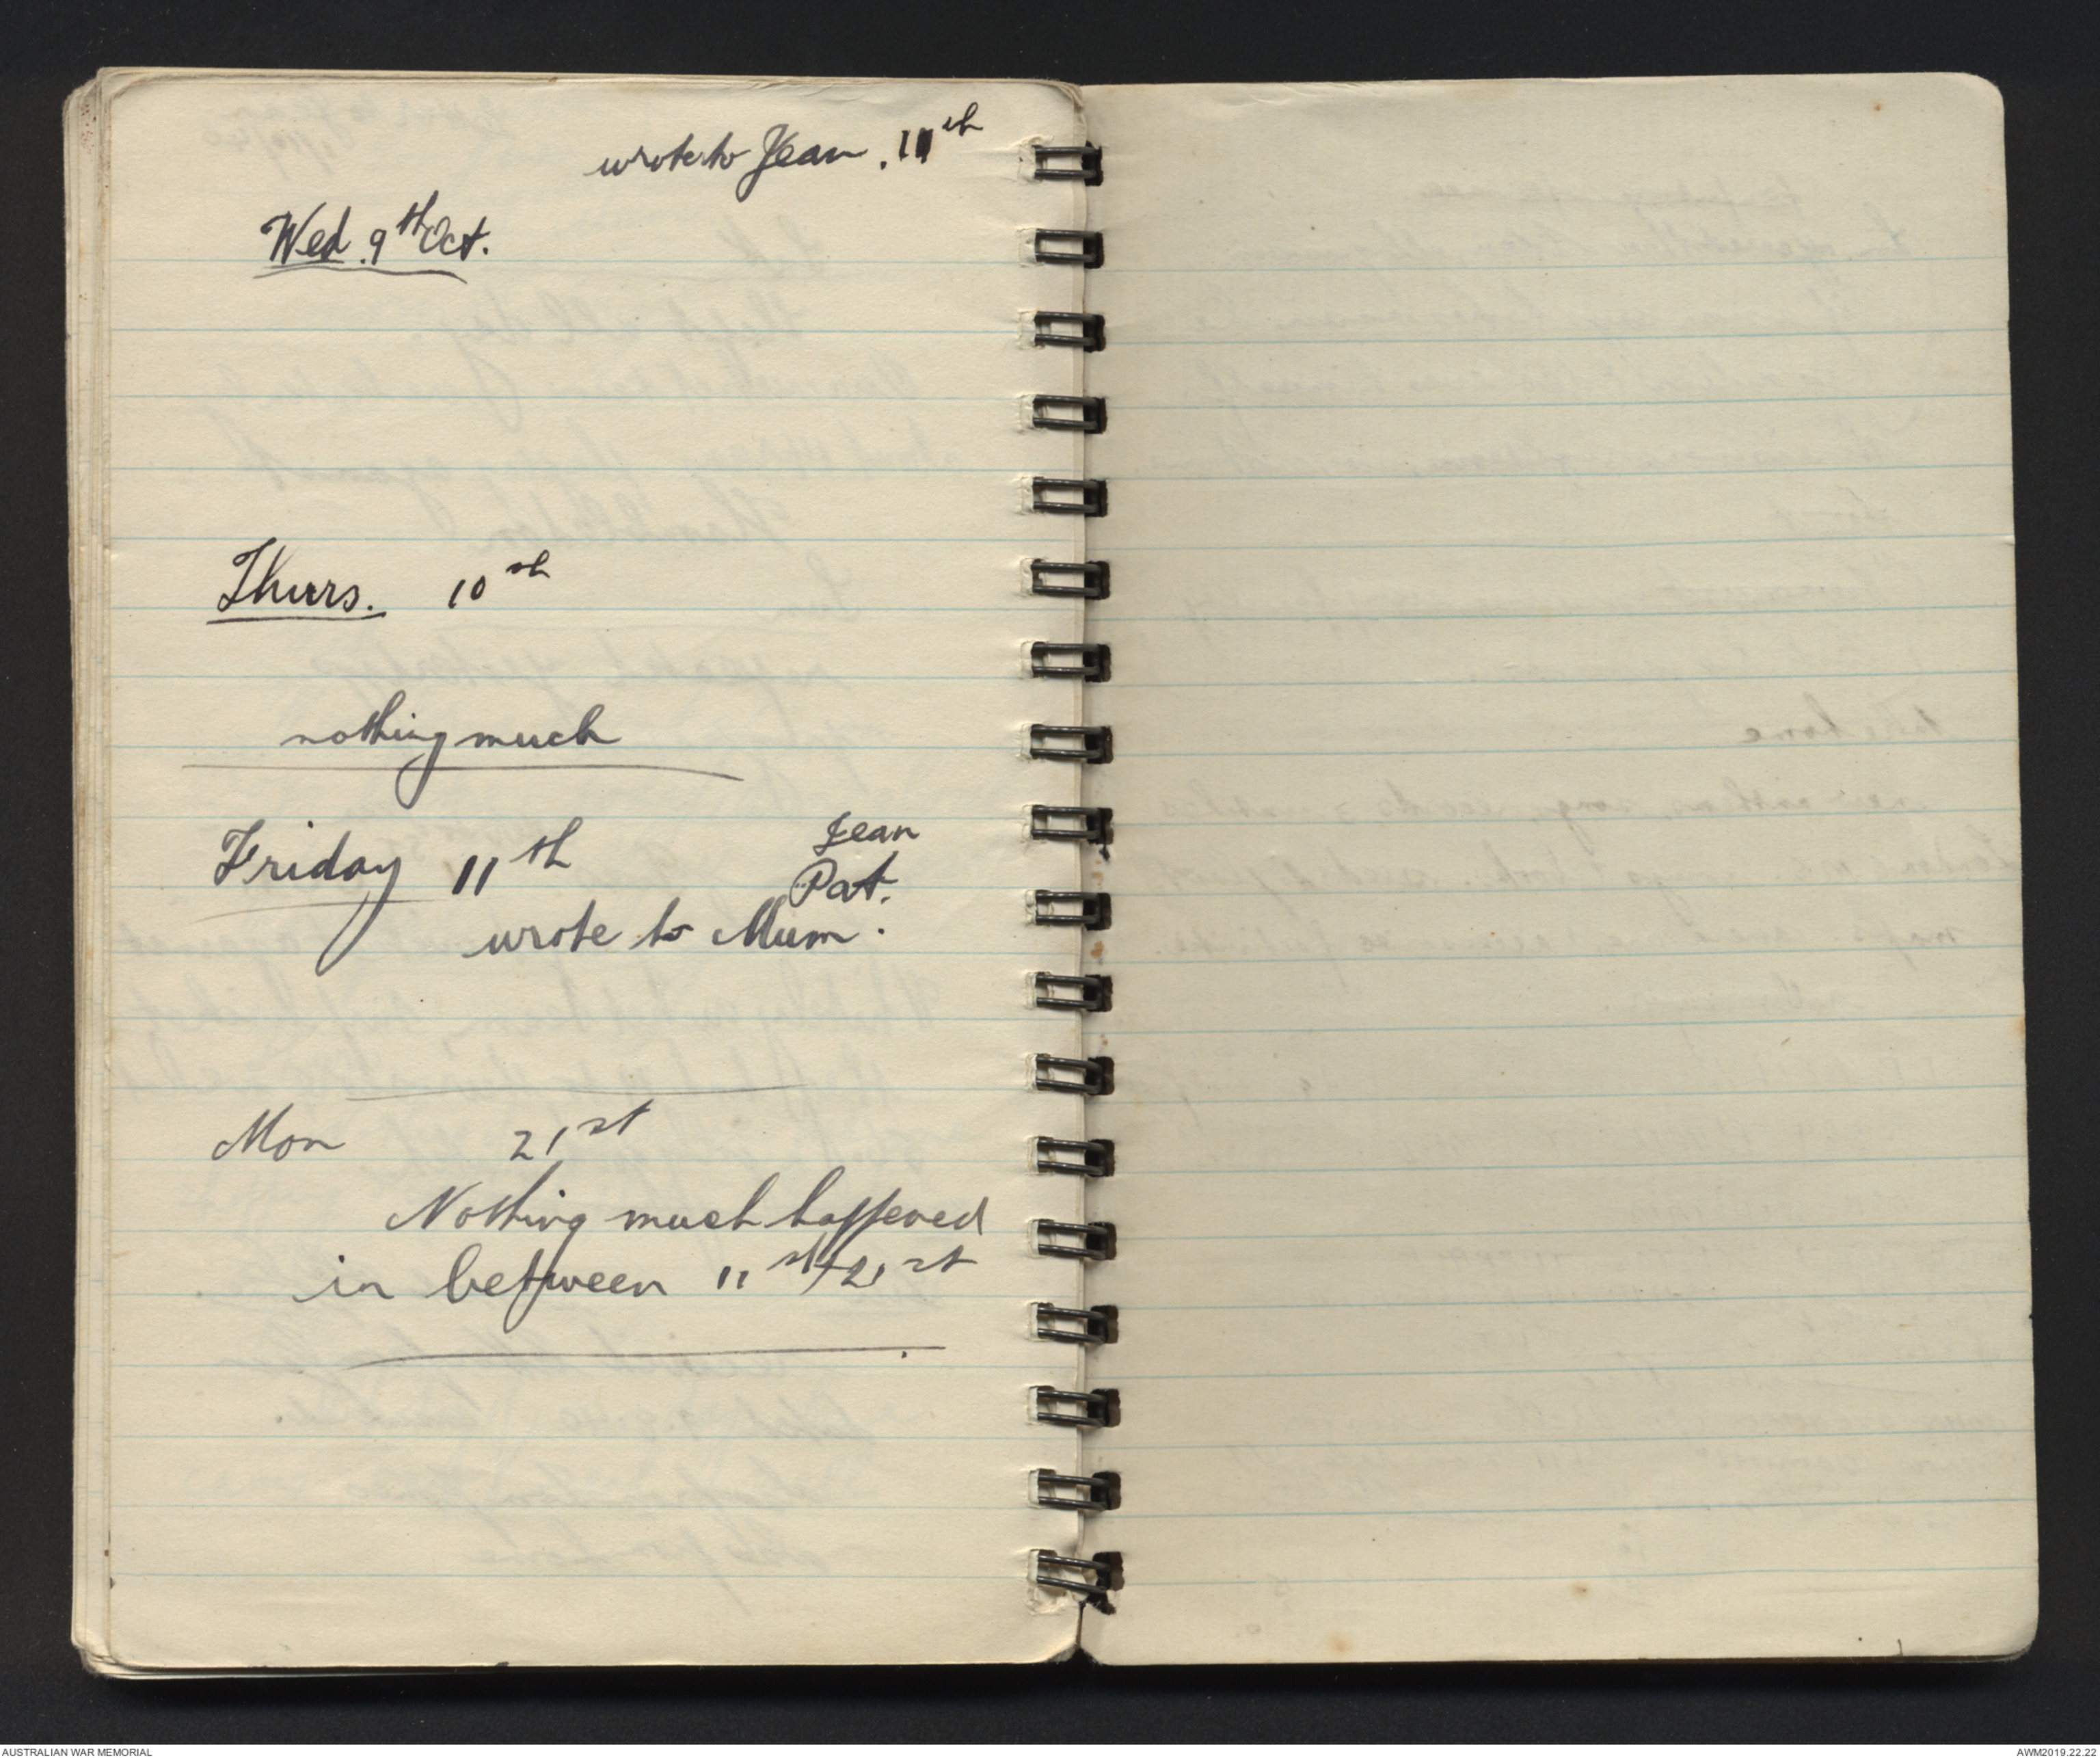 wrote to Jean. 11th
Wed. 9th Oct.
Thurs. 10th
nothing much
Friday 11th
Jean
Pat.
wrote to Mum.
Mon 21st
Nothing much happened
in between 11st & 21st
AUSTRALIAN WAR MEMORIAL
AWM2019.22.22